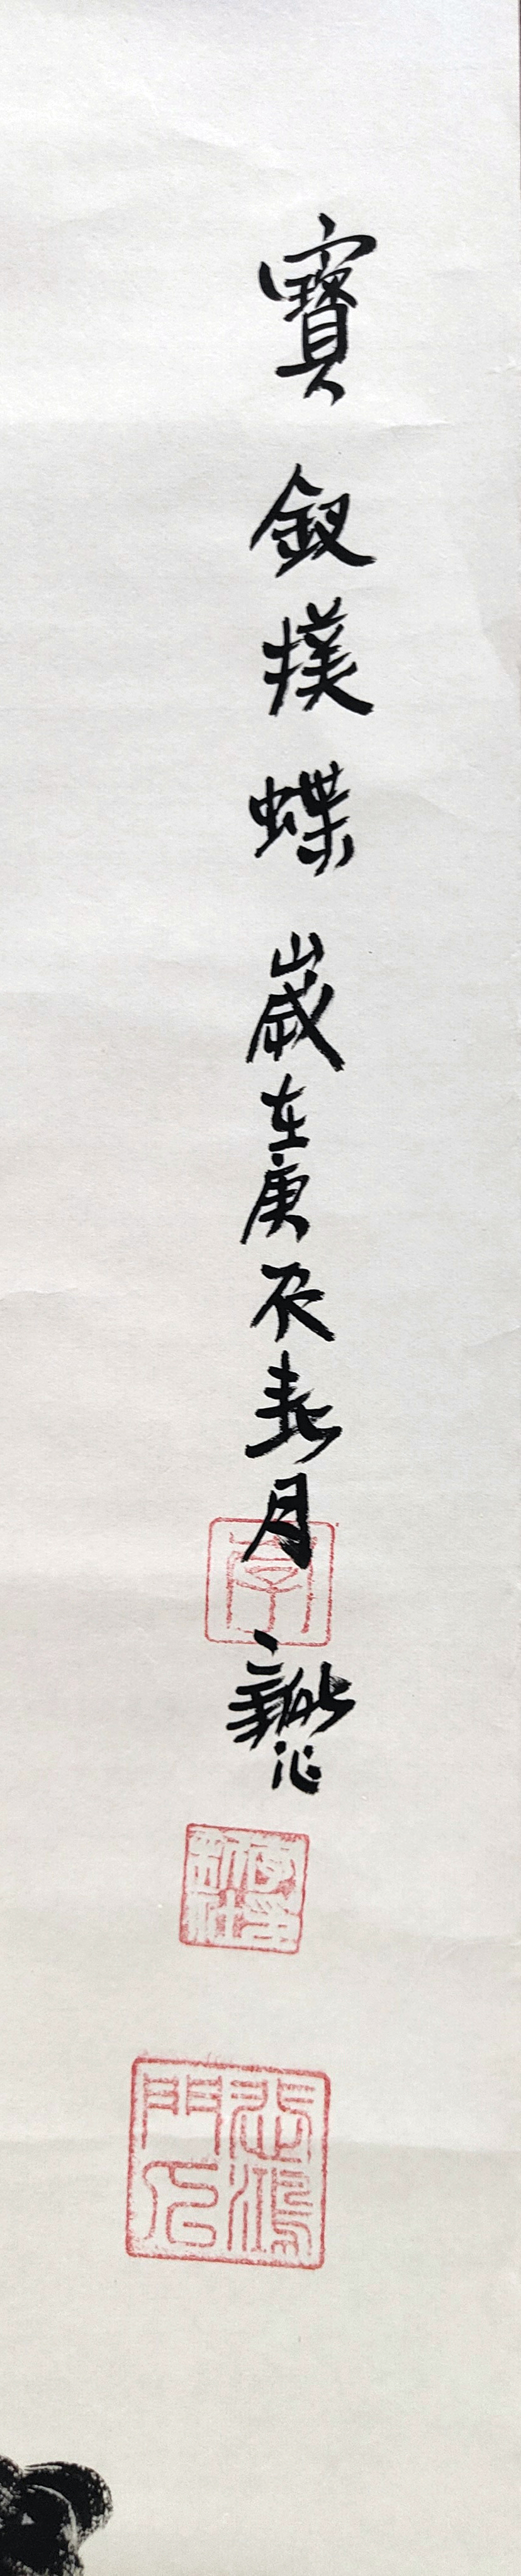 寶釵撲蝶 歲在庚辰春月 新
悲鴻門人